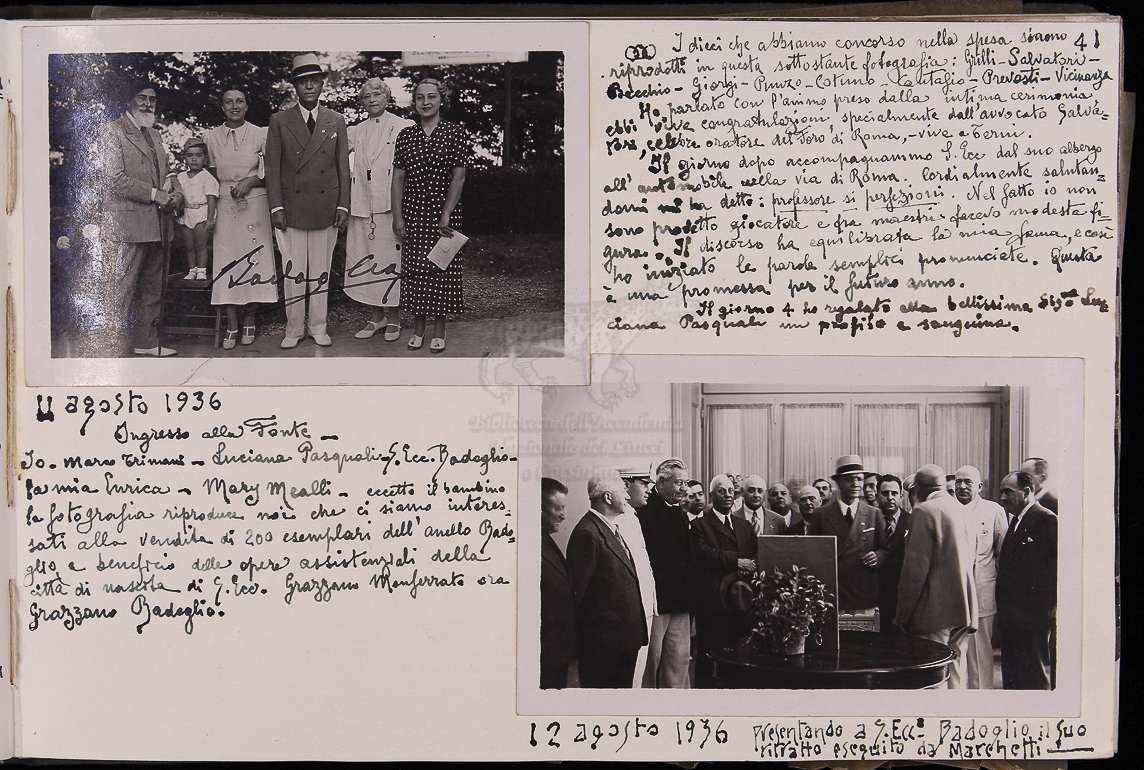 41
I dieci che abbiamo concorso nella spesa siamo
riprodotti in questa sottostante fotografia: Grilli - Salvatori -
Becchio - Giorgi - Punzo - Cotimo - Cantafio - Prevosti - Vicinanza
Ho parlato con l'animo preso dalla intima cerimonia,
ebbi vive congratulazioni, specialmente dall'avvocato Salva-
tori, celebre oratore del Foro di Roma, - vive a Terni.
Il giorno dopo accompagnammo S. Ecc dal suo albergo
all'automobile nella via di Roma. Cordialmente salutan-
domi mi ha detto: professore si perfezioni. Nel fatto io non
sono provetto giocatore e fra maestri facevo modesta fi-
gura. Il discorso ha equilibrata la mia fama, e così
ho iniziato le parole semplici pronunciate. Questa
è una promessa per il futuro anno.
Il giorno 4 ho regalato alla bellissima Sig.na Lu-
ciana Pasquali un profilo a sanguigna.
Badoglio
11 agosto 1936
Ingresso alla Fonte -
Io - Marco Trimani - Luciana Pasquali - S. Ecc. Badoglio -
la mia Enrica - Mary Mealli - eccetto il bambino
la fotografia riproduce noi che ci siamo interes-
sati alla vendita di 200 esemplari dell'anello Bado-
glio, a beneficio delle opere assistenziali della
città di nascita di S. Ecc. Grazzano Monferrato ora
Grazzano Badoglio.
Biblioteca dell'Accademia
Nazionale dei Lincei
e Corsiniana
12 agosto 1936 presentando a S. Ecc.a Badoglio il suo
ritratto eseguito da Marchetti -